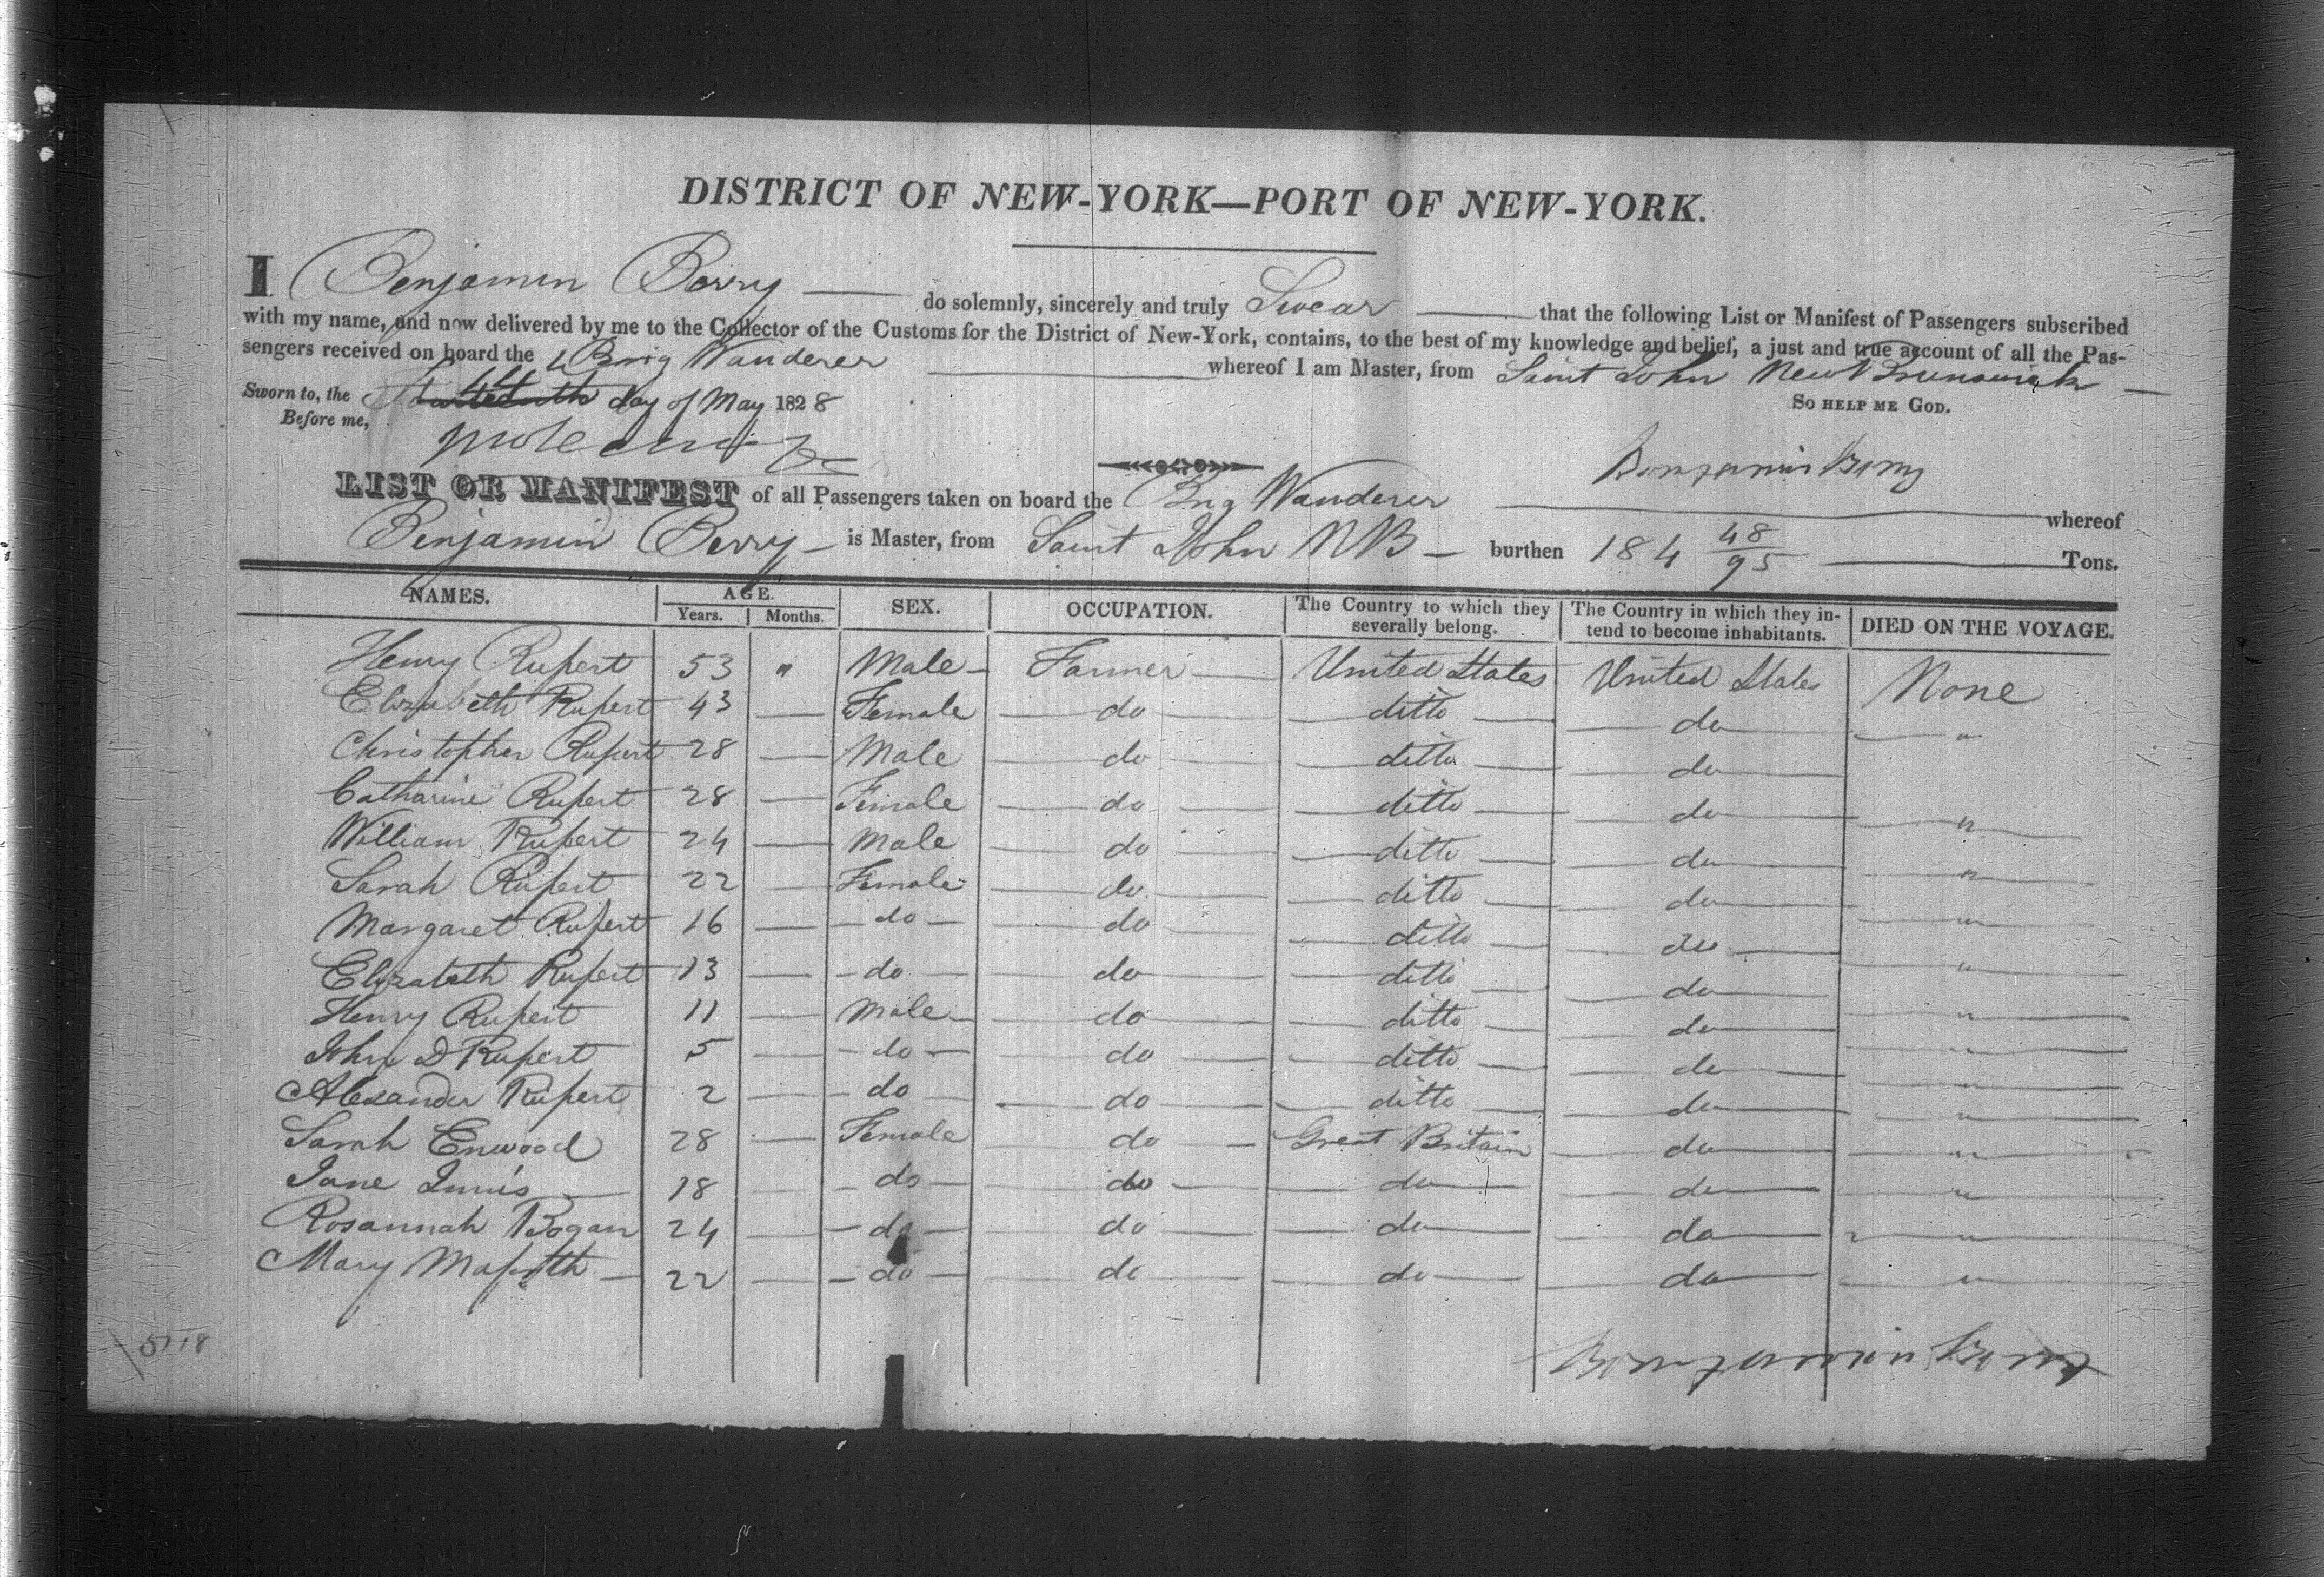 DISTRICT OF NEW-YORK—PORT OF NEW-YORK.
I Benjamin Berry do solemnly, sincerely and truly Swear that the following List or Manifest of Passengers subscribed
with my name, and now delivered by me to the Collector of the Customs for the District of New-York, contains, to the best of my knowledge and belief, a just and true account of all the Pas-
sengers received on board the Brig Wanderer whereof I am Master, from Saint John New Brunswick
Sworn to, the day of May 1828 SO HELP ME GOD.
Before me,
Benjamin Berry
LIST OR MANIFEST of all Passengers taken on board the Brig Wanderer whereof
Benjamin Berry is Master, from Saint John NB burthen 184 48/95 Tons.
NAMES. AGE. Years. Months. SEX. OCCUPATION. The Country to which they severally belong. The Country in which they in-tend to become inhabitants. DIED ON THE VOYAGE.
Henry Rupert 53 " Male Farmer United States United States None
Elizabeth Rupert 43 — Female do ditto do "
Christopher Rupert 28 — Male do ditto do
Catharine Rupert 28 — Female do ditto do "
William Rupert 24 — Male do ditto do "
Sarah Rupert 22 — Female do ditto do "
Margaret Rupert 16 — do do ditto do "
Elizabeth Rupert 13 — do do ditto do "
Henry Rupert 11 — Male do ditto do "
John D Rupert 5 — do do ditto do "
Alexander Rupert 2 — do do ditto do "
Sarah Enwood 28 — Female do Great Britain do "
Jane Innis 18 — do do do do "
Rosannah Bogan 24 — do do do do "
Mary 22 — do do do do "
Benjamin Berry